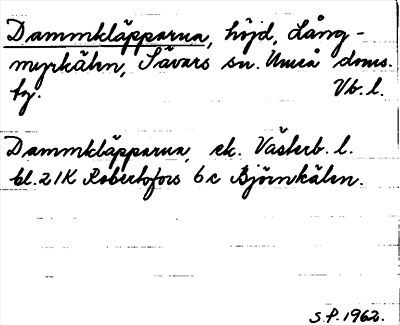 Dammkläpparna, höjd, Lång-
myrkälen, Sävars sn. Umeå doms.
fg. Vb. l.
Dammkläpparna, ek. Västerb. l.
bl. 21K Robertsfors 6 c Björnkälen.
S.P. 1962.